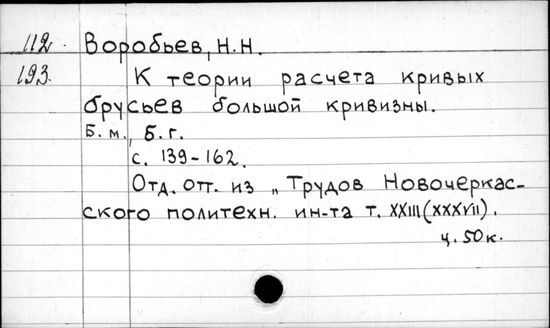 112. Воробьев, Н.Н.
193. К теории расчета кривых
брусьев большой кривизны.
Б.м., Б.г.
с. 139-162.
Отд. отт. из „Трудов Новочеркас-
ского политехн. ин-та т. XXIII(XXXVII).
ц. 50к.